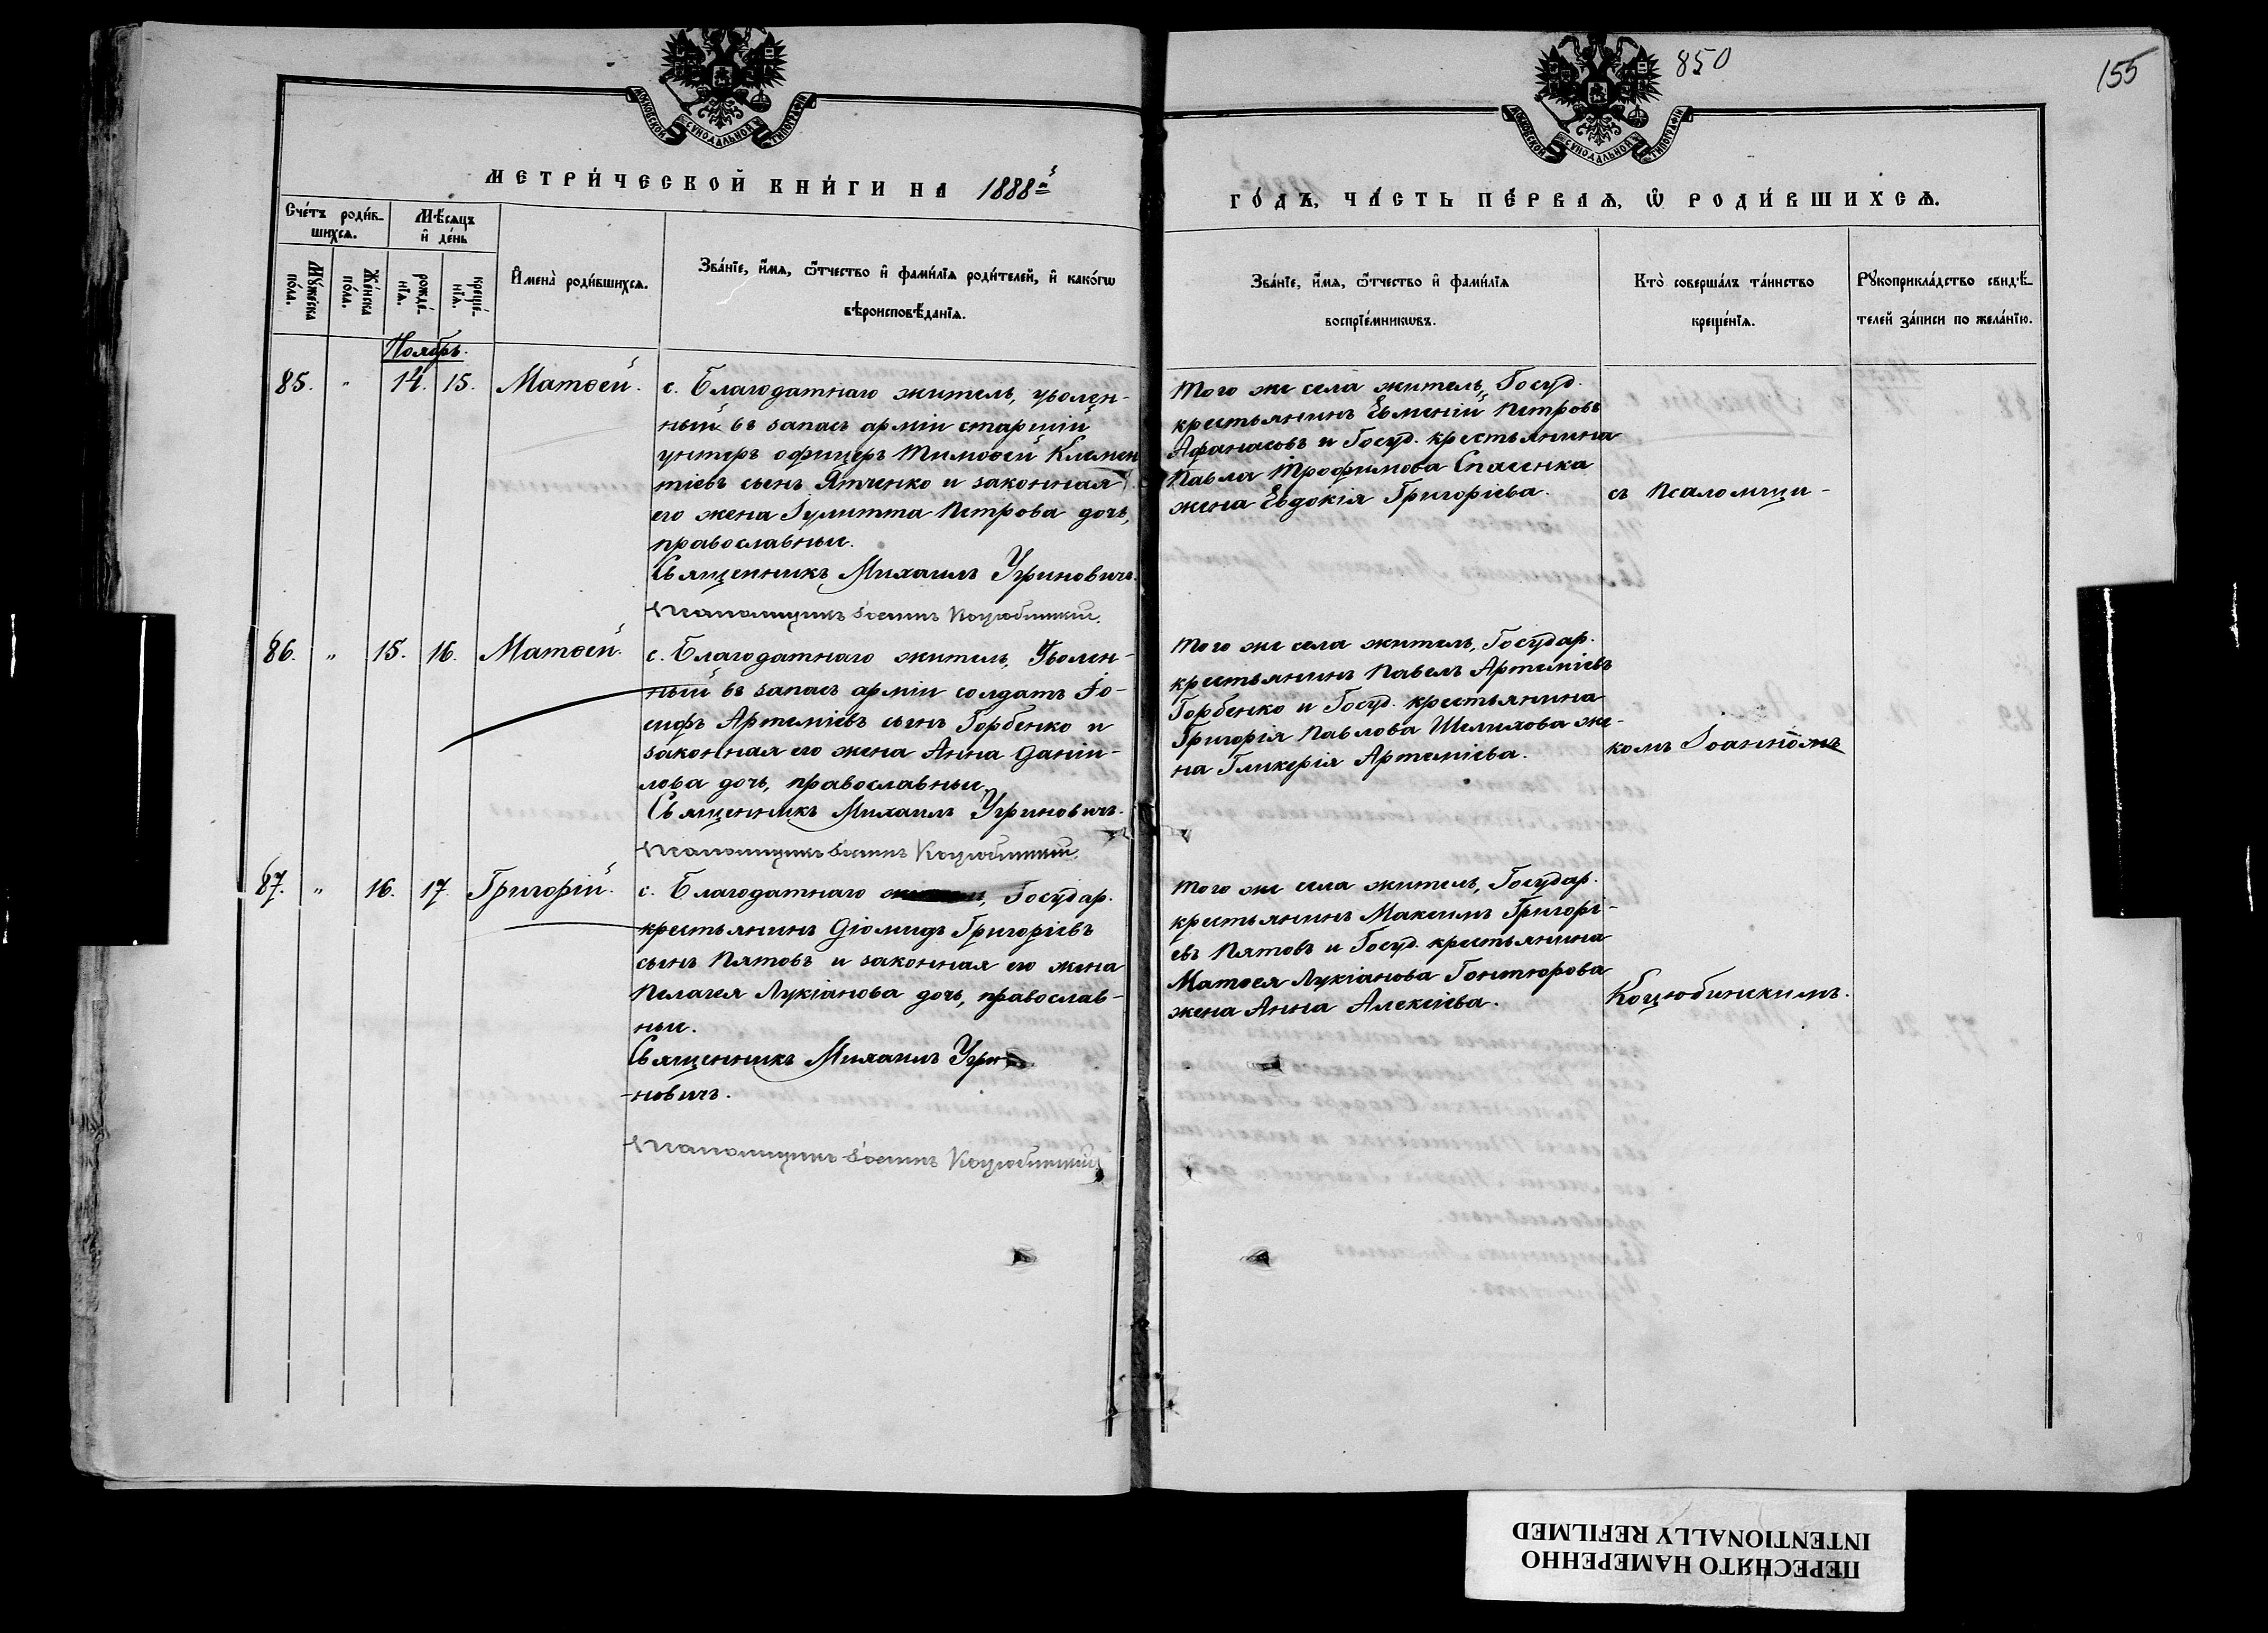 850
155
МОСКОВСКОЙ СѴНОДАЛЬНОЙ ТИПОГРАФІИ
МОСКОВСКОЙ СѴНОДАЛЬНОЙ ТИПОГРАФІИ
МЕТРИ́ЧЕСКОЙ КНИ́ГИ НА 1888й
ГО́ДЪ, ЧА́СТЬ ПЕ́РВАѦ, Ѡ҆ РОДИ́ВШИХСѦ.
Сче́тъ роди́в-
шихсѧ.
Мꙋ́жеска по́ла.
Же́нска по́ла.
Мѣ́сѧцъ
и҆ де́нь
рожде́-
нїѧ.
креще́-
нїѧ.
И҆мена̀ роди́вшихсѧ.
Зва́нїе, и҆́мѧ, ѻ҆́тчество и҆ фами́лїѧ роди́телей, и҆ како́гѡ
вѣроисповѣ́данїѧ.
Зва́нїе, и҆́мѧ, ѻ҆́тчество и҆ фами́лїѧ
воспрїе́мникѡвъ.
Кто̀ соверша́лъ та́инство
креще́нїѧ.
Рꙋкоприкла́дство свидѣ́-
телей за́писи по жела́нїю.
Ноябрь.
85. " 14. 15. Матѳей.
с. Благодатнаго житель, уволен-
ный въ запасъ арміи старшій
унтеръ офицеръ Тимоѳей Климен
тіевъ сынъ Ятченко и законная
его жена Іулитта Петрова дочь,
православные.
Священникъ Михаилъ Угриновичъ.
Псаломщикъ Іоаннъ Коцюбинскій.
Того же села житель, Госуд.
крестьянинъ Евменій Петровъ
Афанасовъ и Госуд. крестьянина
Павла Трофимова Спасенка
жена Евдокія Григоріева.
съ Псаломщи-
86. " 15. 16. Матѳей.
с. Благодатнаго житель, Уволен-
ный въ запасъ арміи солдатъ Іо-
сифъ Артеміевъ сынъ Горбенко и
законная его жена Анна Даніи-
лова дочь, православные.
Священникъ Михаилъ Угриновичъ.
Псаломщикъ Іоаннъ Коцюбинскій.
Того же села житель, Государ.
крестьянинъ Павелъ Артеміевъ
Горбенко и Госуд. крестьянина
Григорія Павлова Шелихова же-
на Гликерія Артеміева.
комъ Іоанномъ
87. " 16. 17. Григорій.
с. Благодатнаго Государ.
крестьянинъ Діомидъ Григоріевъ
сынъ Пятовъ и законная его жена
Пелагея Лукіанова дочь, православ-
ные.
Священникъ Михаилъ Угри
-новичъ.
Псаломщикъ Іоаннъ Коцюбинскій
Того же села житель, Государ.
крестьянинъ Максимъ Григорі-
евъ Пятовъ и Госуд. крестьянина
Матѳея Лукіанова Гонтюрова
жена Анна Алексіева.
Коцюбинскимъ.
ПЕРЕСНЯТО НАМЕРЕННО
INTENTIONALLY REFILMED